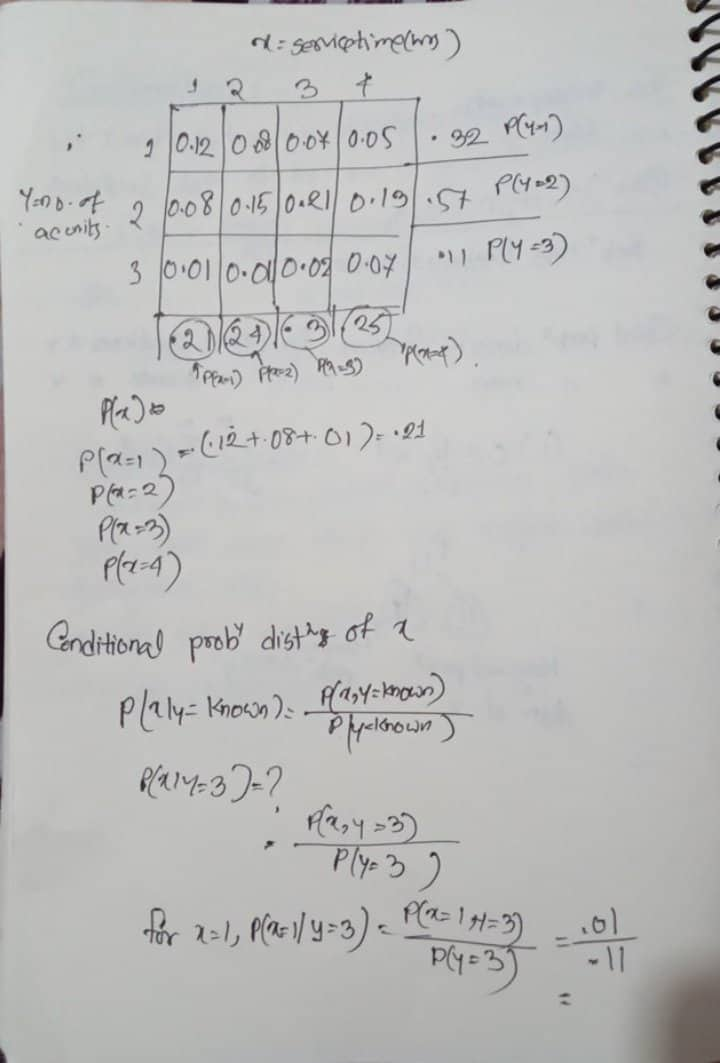 x = servicetime(hrs)
1 2 3 4
1 0.12 0.08 0.07 0.05 .32 P(y=1)
Y=no. of ac units. 2 0.08 0.15 0.21 0.19 .57 P(y=2)
3 0.01 0.01 0.02 0.07 .11 P(y=3)
.21 24 .3 .25 P(x=4).
P(x=1) P(x=2) P(x=3)
P(x)=
P(x=1) = (.12+.08+.01) = .21
P(x=2)
P(x=3)
P(x=4)
Conditional prob^y dist^ng of x
P(x|y= known) = P(x,y=known)
P(y=known)
P(x|y=3)=?
= P(x,y=3)
P(y=3)
for x=1, P(x=1/y=3) = P(x=1,y=3) = .01
P(y=3) .11
=